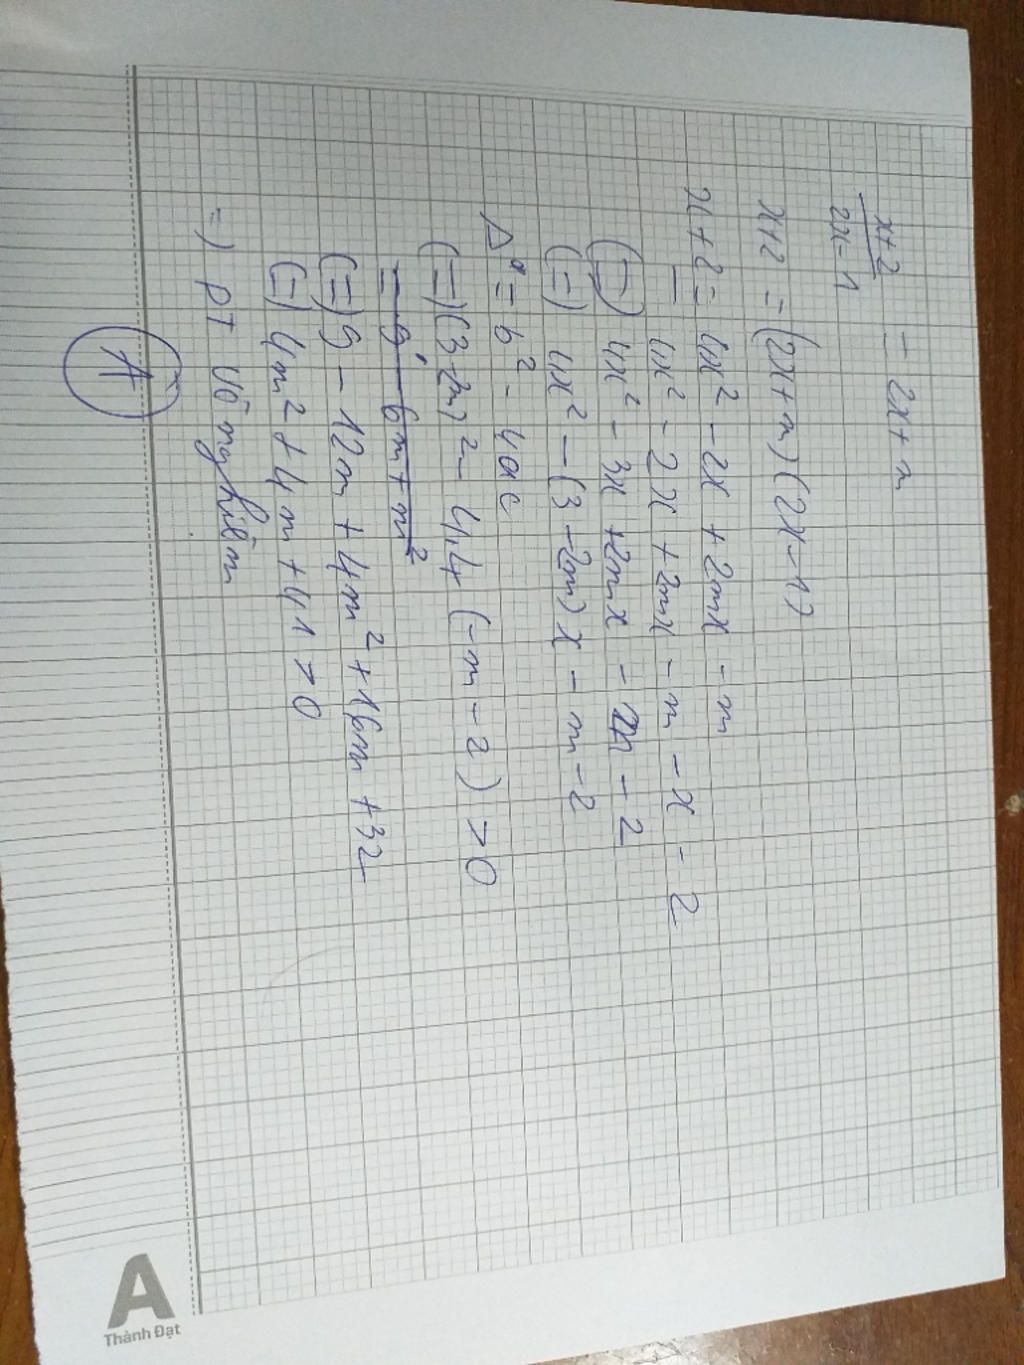 x+2
2x-1 = 2x+m
x+2 = (2x+m)(2x-1)
x+2 = 4x² -2x +2mx -m
= 4x² -2x +2mx -m -x -2
(=) 4x² -3x +2mx -m -2
(=) 4x² -(3-2m)x -m-2
Δ = b² -4ac
(=) (3-2m)² - 4.4 (-m-2) > 0
= 9 - 6m + m²
(=) 9 - 12m + 4m² + 16m + 32
(=) 4m² + 4m + 41 > 0
=) pt vô nghiệm
A
A
Thành Đạt